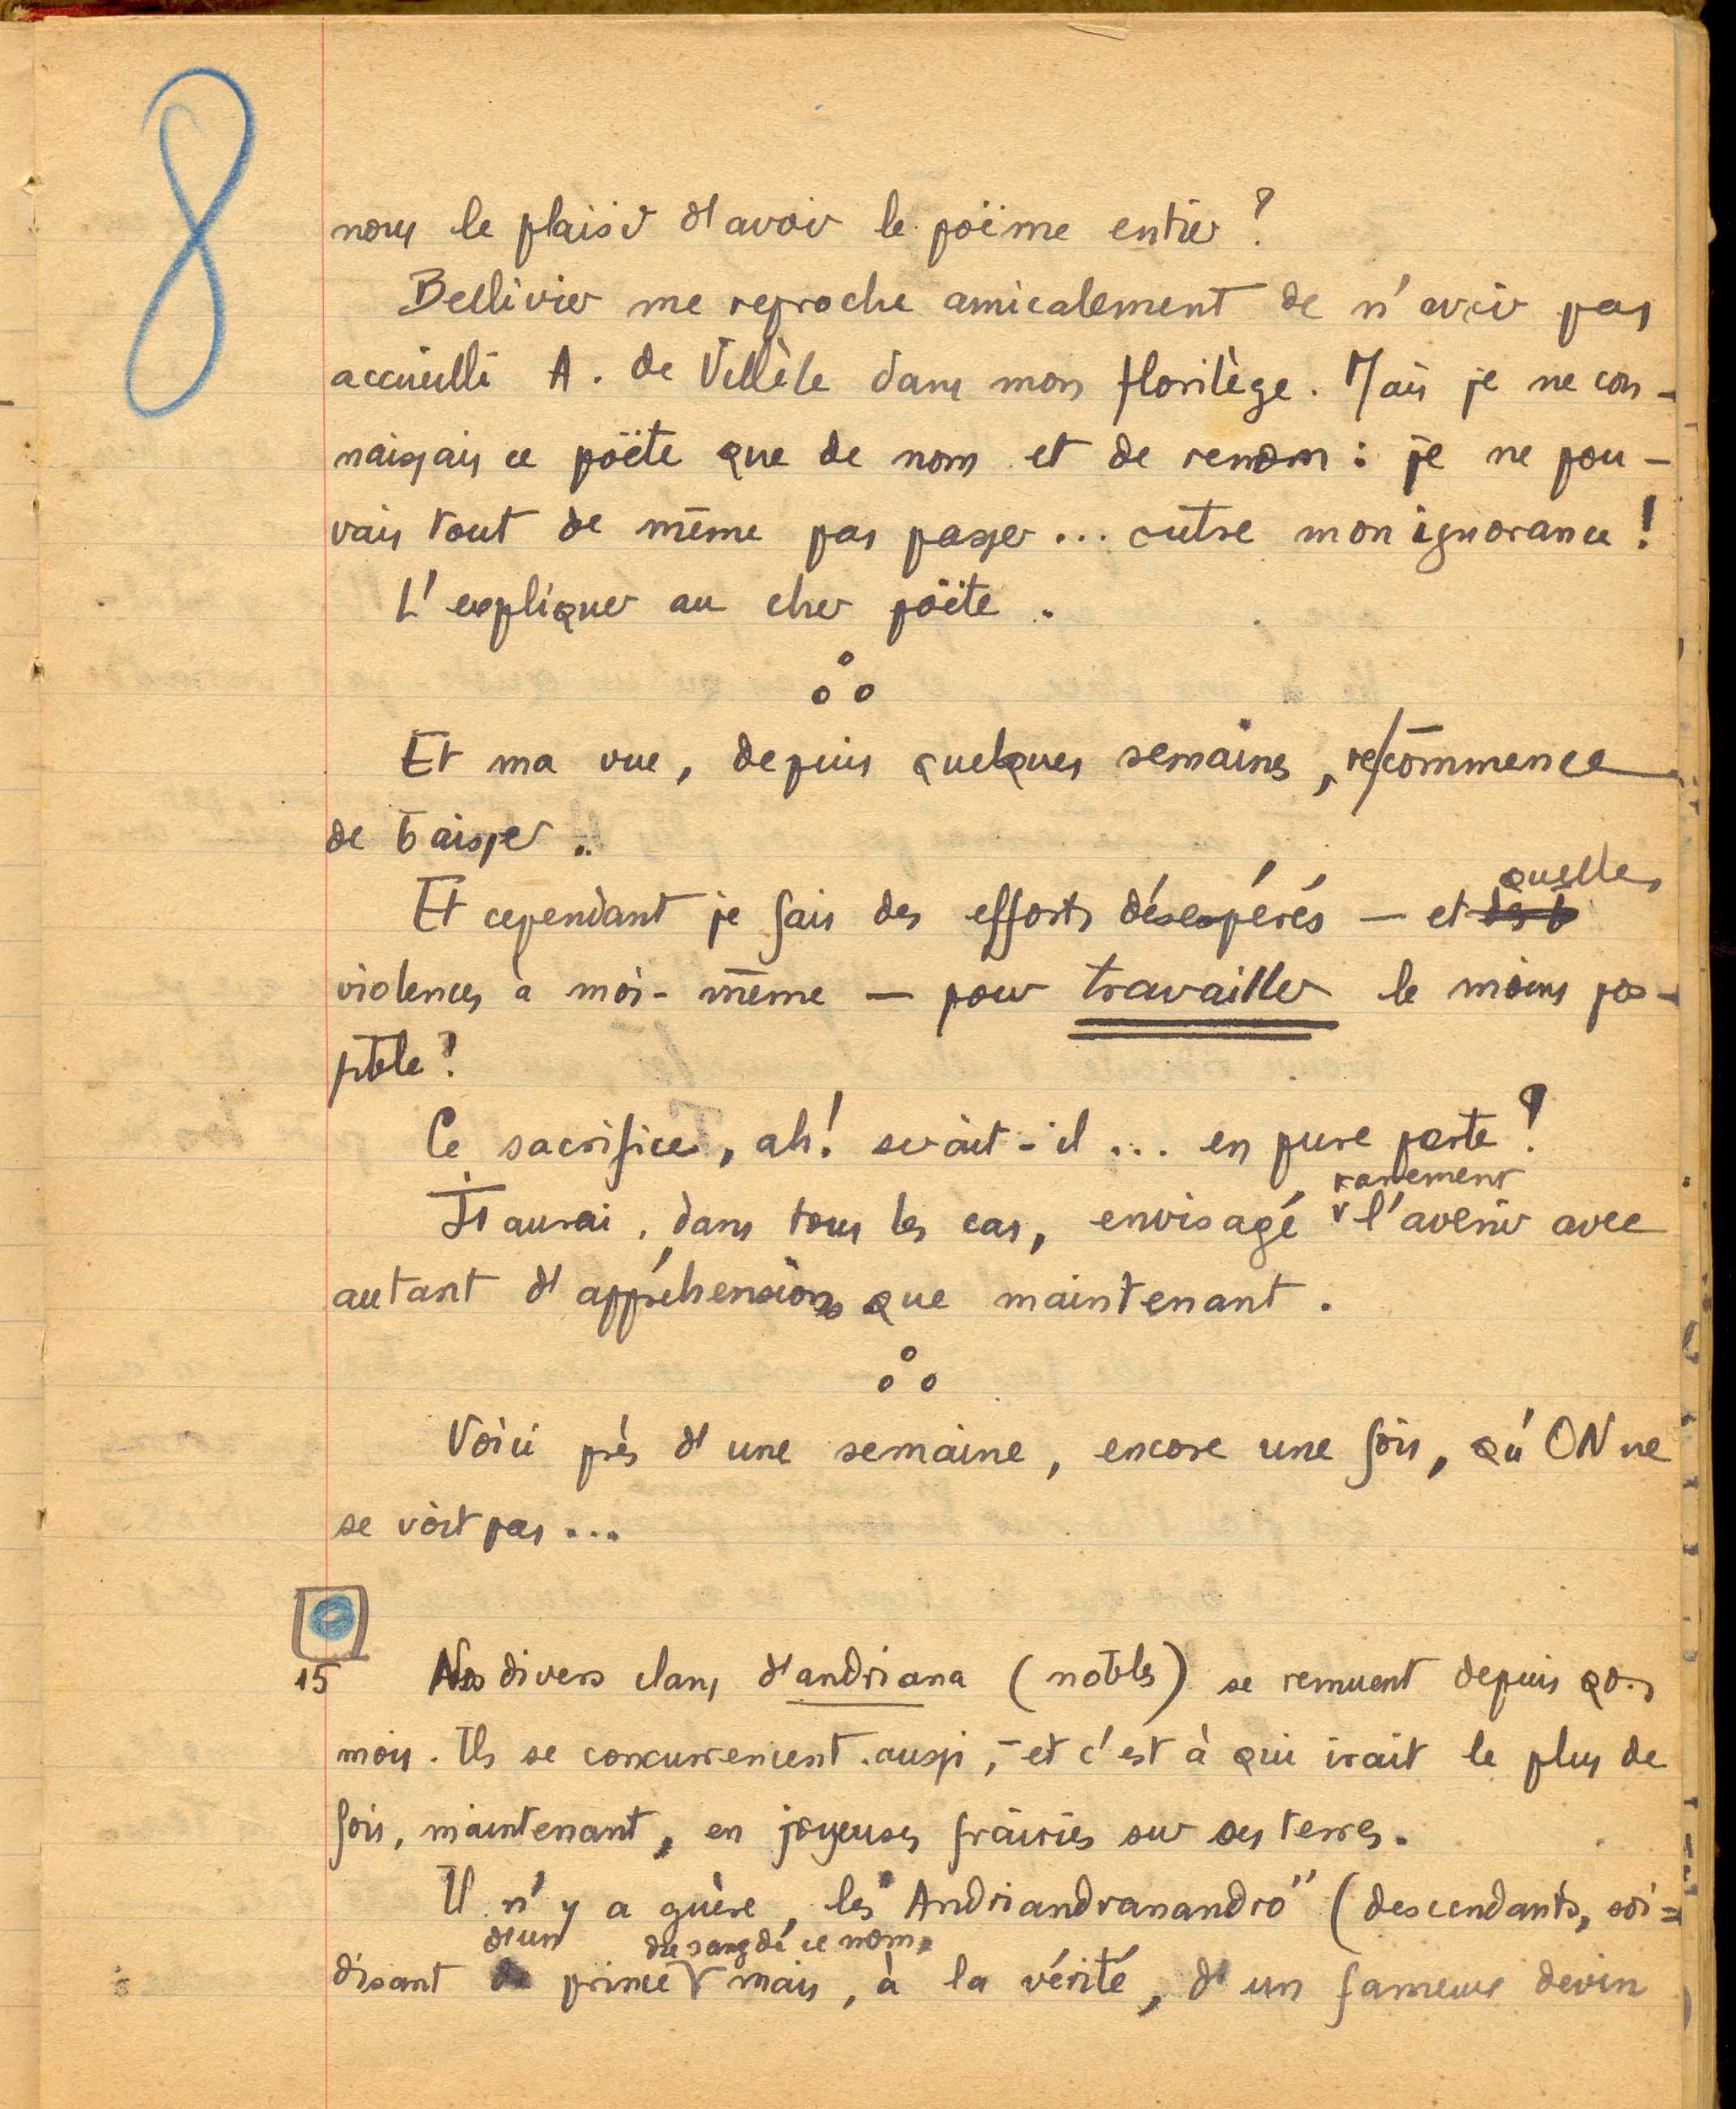 8
nous le plaisir d'avoir le poëme entier ?
Bellivier me reproche amicalement de n'avoir pas
accueilli A. de Villèle dans mon florilège. Mais je ne con-
naissais ce poëte que de nom et de renom : je ne pou-
vais tout de même pas passer... outre mon ignorance !
L'expliquer au cher poëte.
Et ma vue, depuis quelques semaines, recommence
de baisser..
quelles
Et cependant je fais des efforts désespérés — et
violences à moi-même — pour travailler le moins pos-
sible ?
Ce sacrifice, ah ! serait-il ... en pure perte ?
rarement
J'aurai, dans tous les cas, envisagé l'avenir avec
autant d'appréhensions que maintenant.
Voici près d'une semaine, encore une fois, qu'ON ne
se voit pas...
15 Nos divers clans d'andriana (nobles) se remuent depuis qq.
mois. Ils se concurrencent aussi, - et c'est à qui irait le plus de
fois, maintenant, en joyeuses frairies sur ses terres.
Il n'y a guère, les "Andriandranando" (descendants, soi=
d'un du sang de ce nom,
disant prince mais, à la vérité, d'un fameux devin